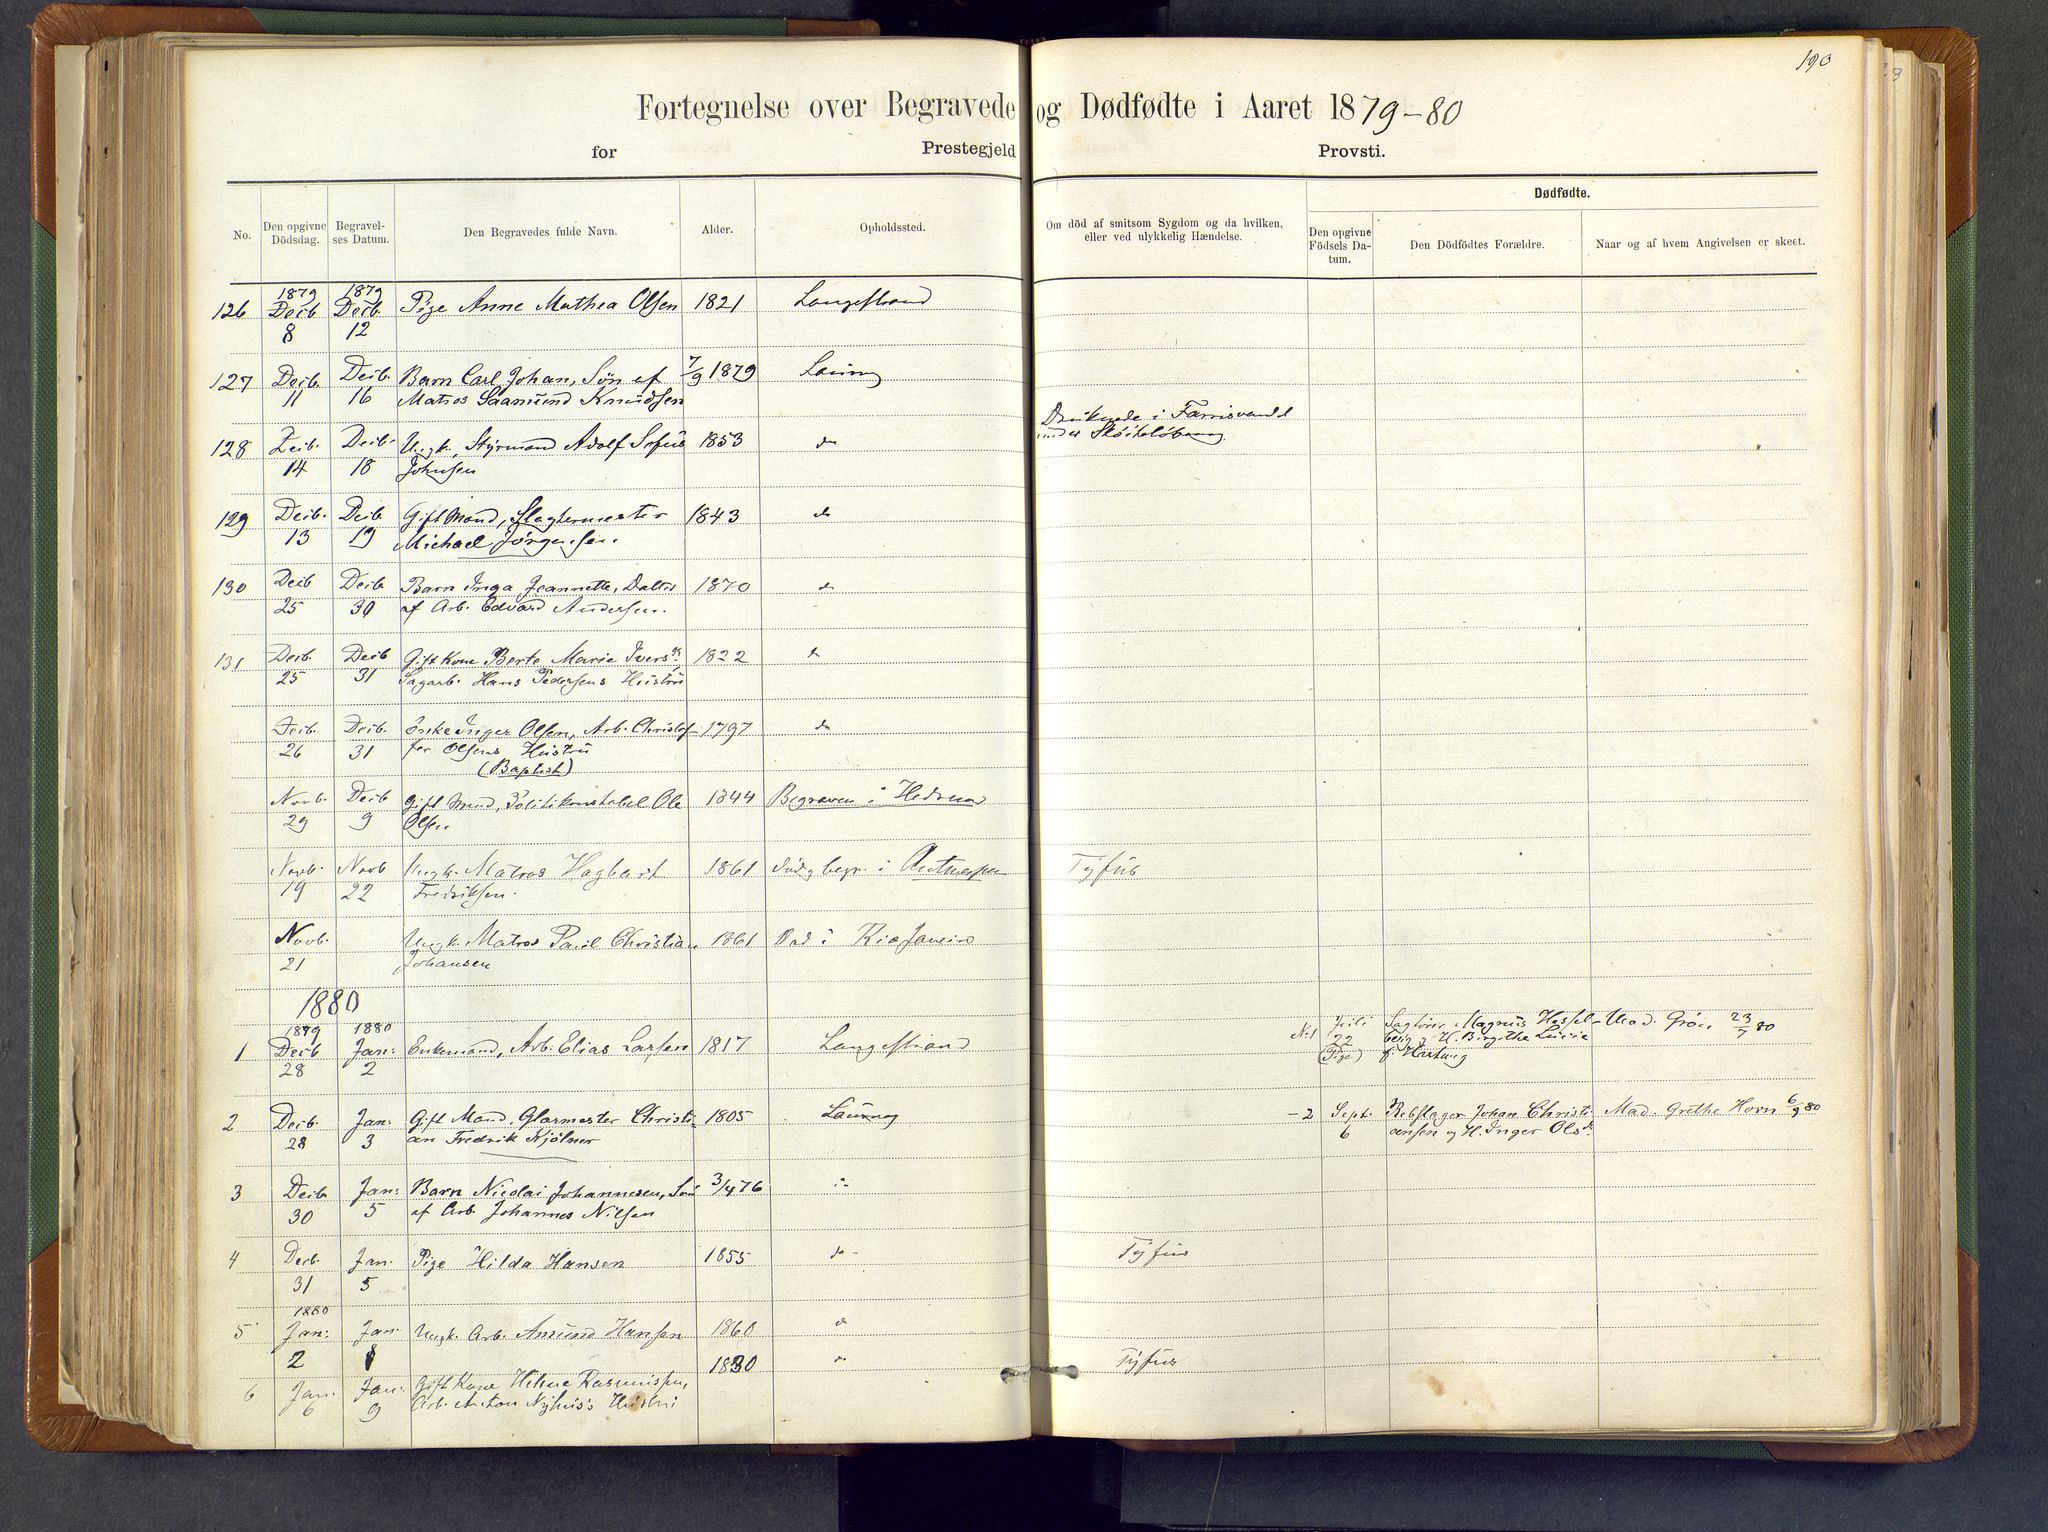 190
Fortegnelse over Begravede og Dødfødte i Aaret 1879-80
for Prestegjeld Provsti.
No. Den opgivne Dödsdag. Begravelses Datum. Den Begravedes fulde Navn. Alder. Opholdssted. Om död af smitsom Sygdom og da hvilken, eller ved ulykkelig Hændelse.
Dødfødte.
Den opgivne Födsels Datum. Den Dödfödtes Forældre. Naar og af hvem Angivelsen er skeet.
1879 1879
126 Decb. Decb. Pige Anne Mathea Olsen 1821 Langestrand
8 12
127 Decb. Decb. Barn Carl Johan, Søn af 7/9 1879 Laurvig
11 16 Matros Saamund Knudsen
Druknede i Farrisvandet
under Skøiteløbning
128 Decb. Decb. Ungk. Styrmand Adolf Sofus 1853 do
14 18 Johnsen
129 Decb. Decb Gift Mand, Slagtermester 1843 do
13 19 Michael Jörgensen.
130 Decb Decb Barn Inga Jeannette, Datter 1870 do
25 30 af Arb. Edvard Andersen.
131 Decb. Decb Gift Kone Berte Marie Iversd. 1822 do
25 31 Sagarb. Hans Pedersens Hustru
Decb. Decb. Enke Inger Olsen, Arb. Christof- 1797 do
26 31 fer Olsens Hustru
(Baptist)
Novb. Decb Gift Mand, Politikonstabel Ole 1844 Begraven i Hedrum
29 9 Olsen
Novb. Novb Ungk. Matros Hagbart 1861 Död og begr. i Antwerpen Tyfus
19 22 Fredriksen.
Novb. Ungk. Matros Paul Christian 1861 Död i Rio Janeiro
21 Johansen
1880
1879 1880
1 Decb Jan: Enkemand, Arb. Elias Larsen 1817 Langestrand
28 2
No 1 Juli Sagförer Magnus Hessel- Mad. Grön 23/7 80
22 berg og H. Birgithe Lucie
(Pige) f. Hartwig
2 Decb. Jan: Gift Mand, Glarmester Christi- 1805 Laurvig
28 3 an Fredrik Kjölner
- 2 Sept. Rebslager Johan Christi- Mad. Grethe Horn 6/9 80
6 ansen og H. Inger Olsd.
3 Decb Jan: Barn Nicolai Johannesen, Sön 3/4 76 do
30 5 af Arb. Johannes Nilsen
4 Decb. Jan. Pige Hilda Hansen 1855 do - Tyfus
31 5
1880
5 Jan: Jan. Ungk. Arb. Amund Hansen 1860 do
2 8
6 Jan: Jan: Gift Kone Helene Rasmussen, 1830 do Tyfus
6 9 Arb. Anton Nyhus's Hustru